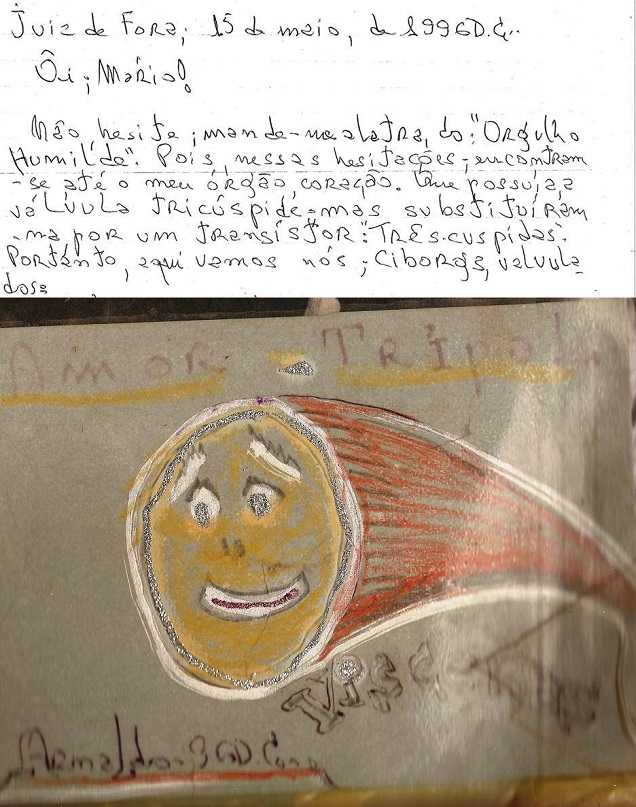 Juiz de Fora; 15 de maio, de 1996D.C.
Ôi; Mário!
Não hesite; mande-me a letra, do: "Orgulho
Humilde". Pois, nessas hesitações-, encontram
-se até o meu órgão, coração. Que possuía a
válvula tricúspide-mas substituíram
-na por um transístor: "Três-cuspidas".
Portanto, aqui vamos nós; Ciborgs, valvula-
dos:
Amor - Tripol
Arnaldo-96D.C.